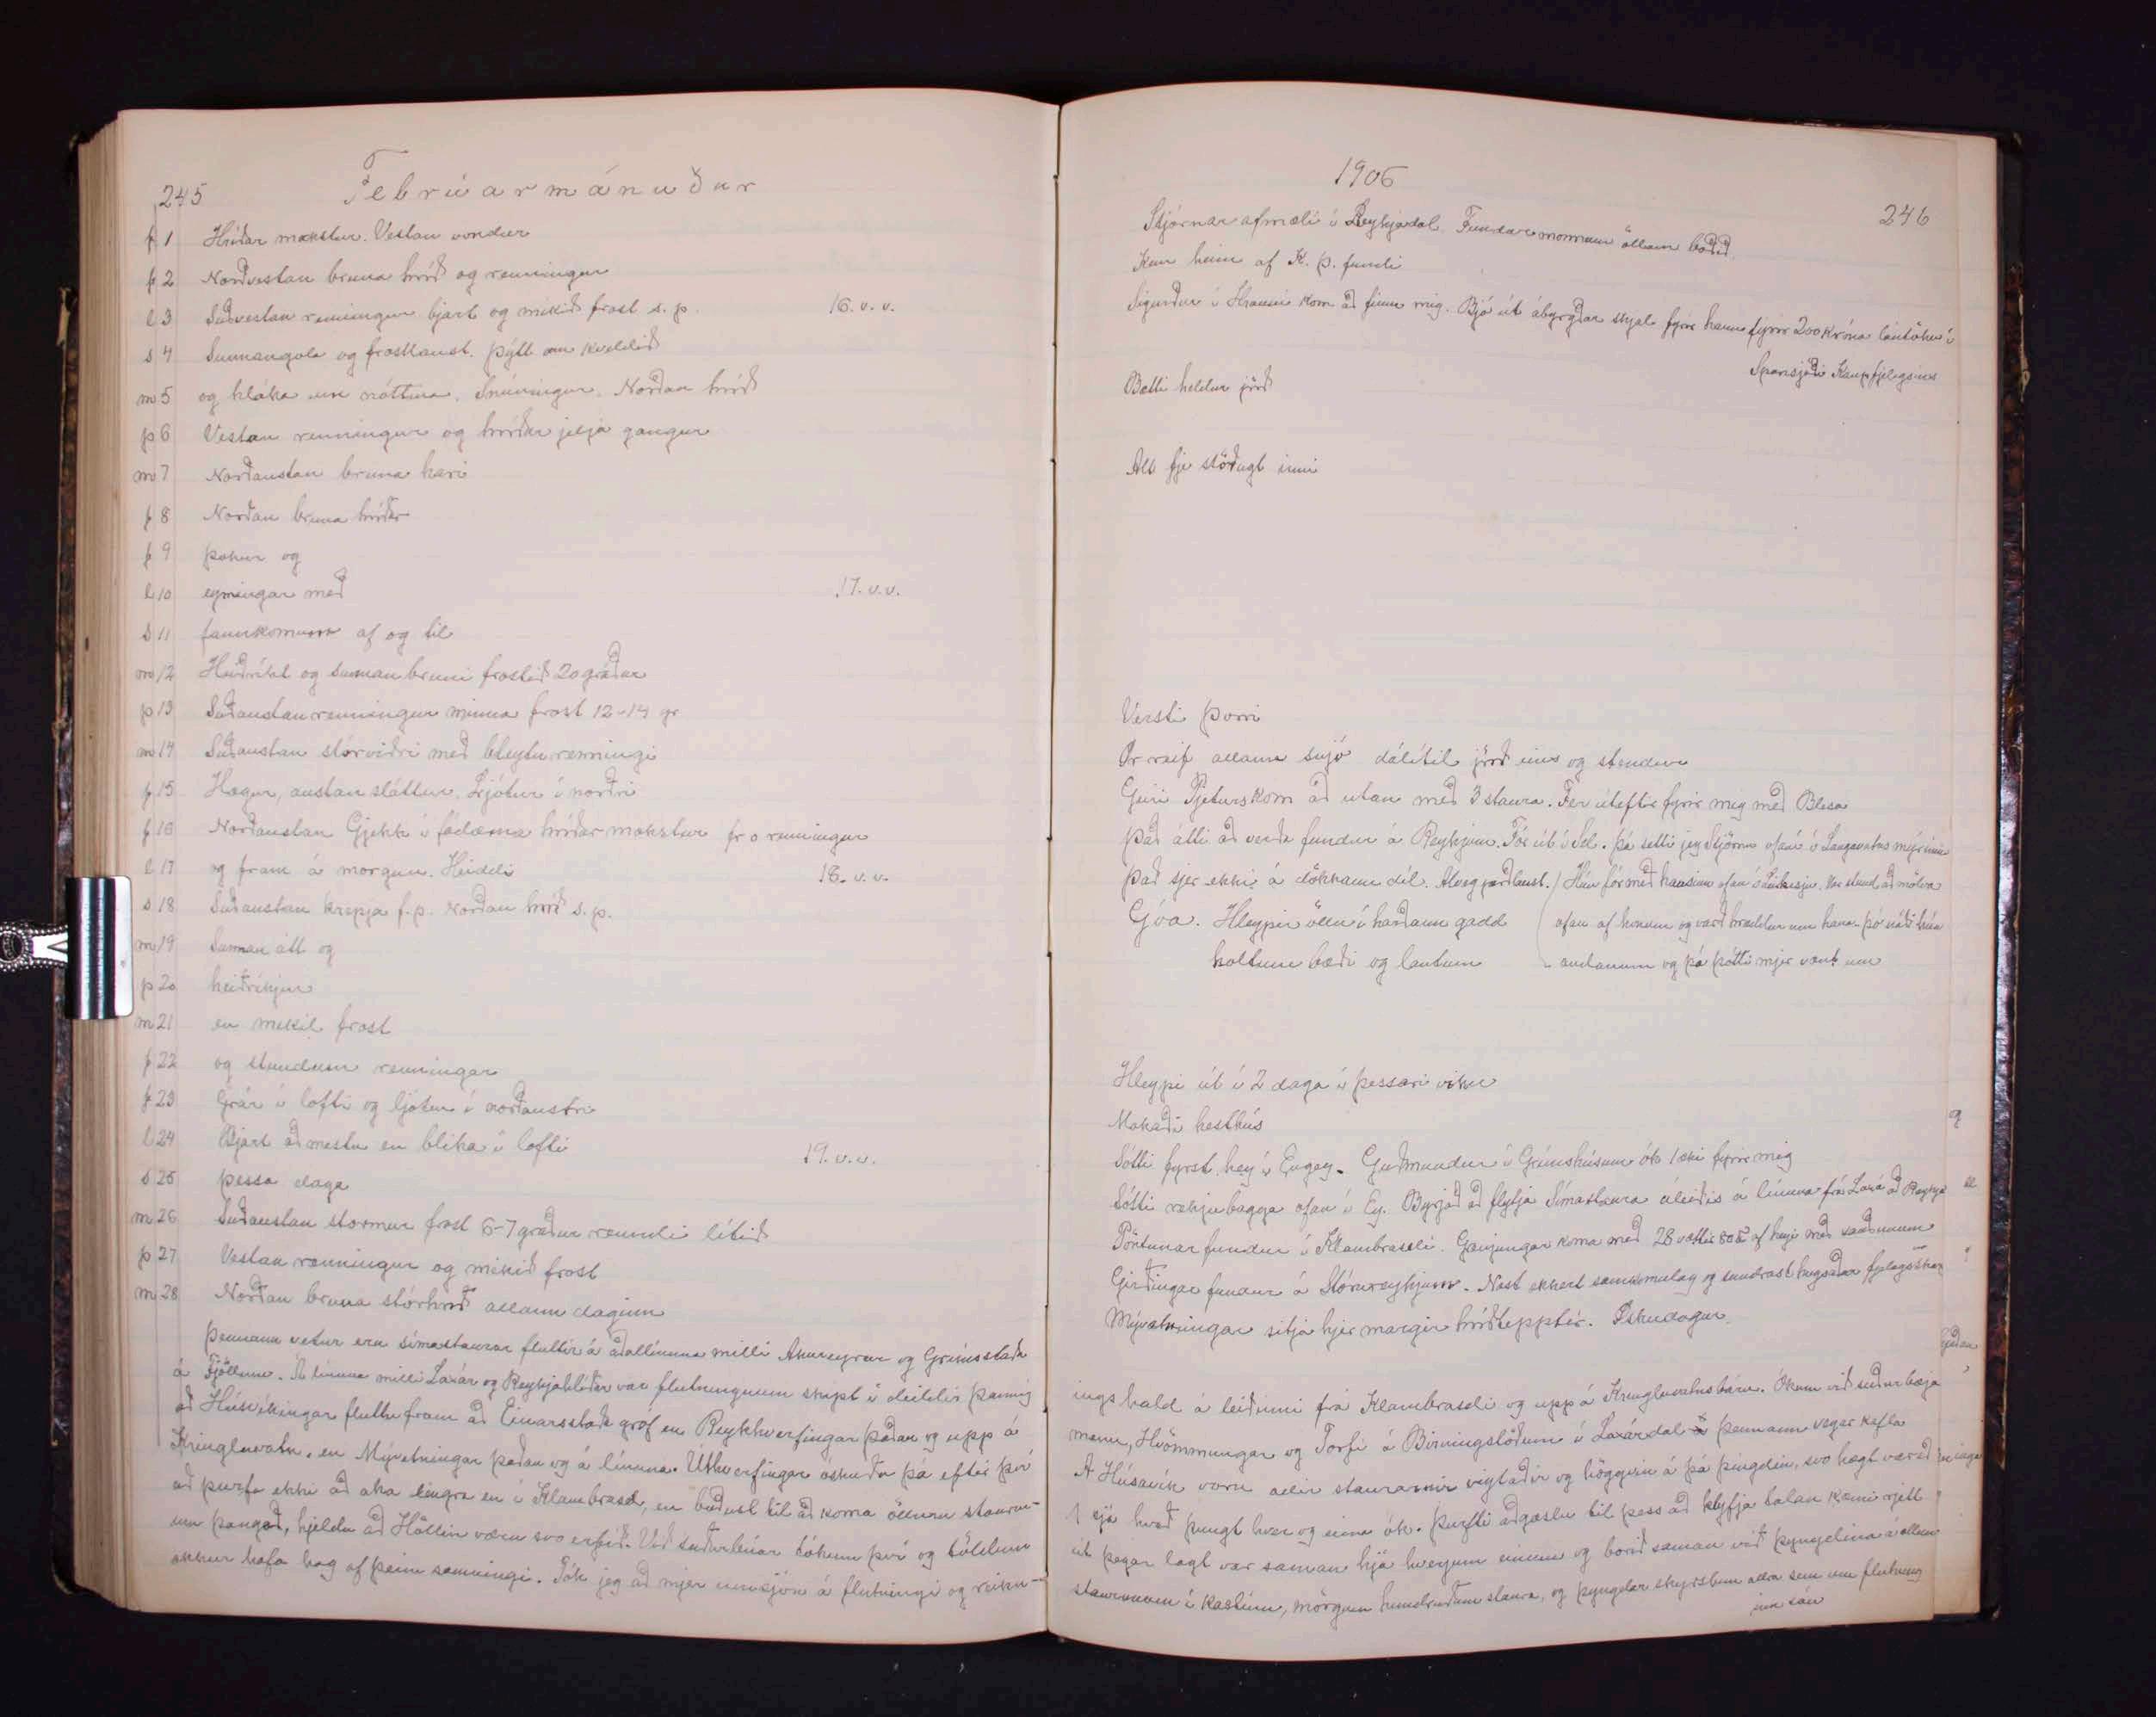 245
Febrúarmánuður
f 1 Hríðar mokstur. Vestan vondur
f 2 Norðvestan bruna hríð og renningur
l 3 Suðvestan renningur bjart og mikið frost s. p. 16. v. v.
s 4 Sunnangola og frostlaust. Þýtt um kveldið
m 5 og hláka um nóttina. Snúningur. Norðan hríð
þ 6 Vestan renningur og hríðar jelja gangur
m 7 Norðaustan bruna kari
f 8 Norðan bruna hríðar
f 9 þokur og
l 10 ýmingar með 17. v. v.
s 11 fannkomum af og til
m 12 Heiðríkt og sunnan bruni frostið 20 gráður
þ 13 Suðaustan renningur minna frost 12-14 gr
m 14 Suðaustan stórviðri með bleytu renningi
f 15 Hægur, austan sláttur. Ljótur í norðri
f 16 Norðaustan Gjekk í fádæma hríðar mokstur fr o renningur
l 17 og fram á morgun. Heiddi 18. v. v.
s 18 Suðaustan krepja f. p. Norðan hríð s. p.
m 19 Sunnan átt og
þ 20 heiðríkjur
m 21 en mikil frost
f 22 og stundum renningar
f 23 Grár í lofti og ljótur í norðaustri
l 24 Bjart að mestu en blika í lofti 19. v. v.
s 25 þessa daga
m 26 Suðaustan stormur frost 6-7 gráður renndi lítið
þ 27 Vestan renningur og mikið frost
m 28 Norðan bruna stórhríð allann daginn
Þennann vetur eru símastaurar fluttir á aðallínuna milli Akureyrar og Grímsstaða
á Fjöllum. Á línuna milli Laxár og Reykjahlíðar var flutningnum skipt í deildir þannig
að Húsvíkingar fluttu fram að Einarsstaða gróf en Reykhverfingar þaðan og upp á
Kringluvatn, en Mývetningar þaðan og á línuna. Úthverfingar óskuðu þá eftir því
að þurfa ekki að aka leingra en í Klambrasel, en buðust til að koma öllum staurun-
um þangað, hjeldu að Höllin væru svo erfið. Við suðurbúar tókum því og töldum
okkur hafa hag af þeim samningi. Tók jeg að mjer umsjón á flutningi og reikn-
1906
246
Stjórnar afmæli í Reykjadal. Fundarmönnum öllum boðið
Kem heim af K. Þ. fundi
Sigurður í Hrauni kom að finna mig. Bjó út ábyrgðar skjal fyrir hann fyrir 200 króna lántöku í
Sparisjóði Kaupfjelagsins
Batti heldur jörð
Allt fje stöðugt inni
Versti þorri
Or reif allann snjó dálítil jörð eins og stendur
Geiri Pjeturs kom að utan með 3 staura. Fer úteftir fyrir mig með Blesa
Það átti að verða fundur á Reykjum. Fór út í Sel. Þá setti jeg Stjörnu ofaní í Langavatns mýrinni
Það sjer ekki á dökkann díl. Alveg jarðlaust. / Hún fór með hausinn ofan í Var stund að mölva
Góa. Hleypir öllu í harðann gadd ( ofan af henni og varð hræddur um hana. þó náði hún
holtum bæði og lautum andanum og þá þótti mjer vænt um
Hleypi út í 2 daga í þessari viku
Mokaði hesthús
Sótti fyrst hey í Eyjey. Guðmundur í Grímshúsum ók 1 ski fyrir mig
Sótti rekjubagga ofan í Ey. Byrjað að flytja Símastaura áleiðis á línuna frá Laxá að Reykja
Pöntunar fundur í Klambraseli. Geirjungar koma með 28 vættir 80 af heyi með sauðunum
Girðingar fundur á Stórureykjum. Næst ekkert samkomulag og sundrast hugsaðar fjelagsskap
Mývatningar sitja hjer margir hríðtepptir. Öskudagur.
ings hald á leiðinni frá Klambraseli og uppá Kringluvatnsbáru. Ókum við suðurbæja
menn, Hvömmungar og Torfi á Birningsstöðum í Laxárdal þennann vegar kafla
Á Húsavík voru allir staurarnir vigtaðir og höggvin á þá þingdin, svo hægt væri að
sjá hvað þungt hver og einn ók. Þurfti aðgæslu til þess að klyfja talan kæmi rjett
út þegar lagt var saman hjá hverjum einum og borið saman við þyngdina á öllum
staurunum í köstum, mörgum hundruðum staura, og þyngdar skyrslum allra sem um flutning
inn sáu